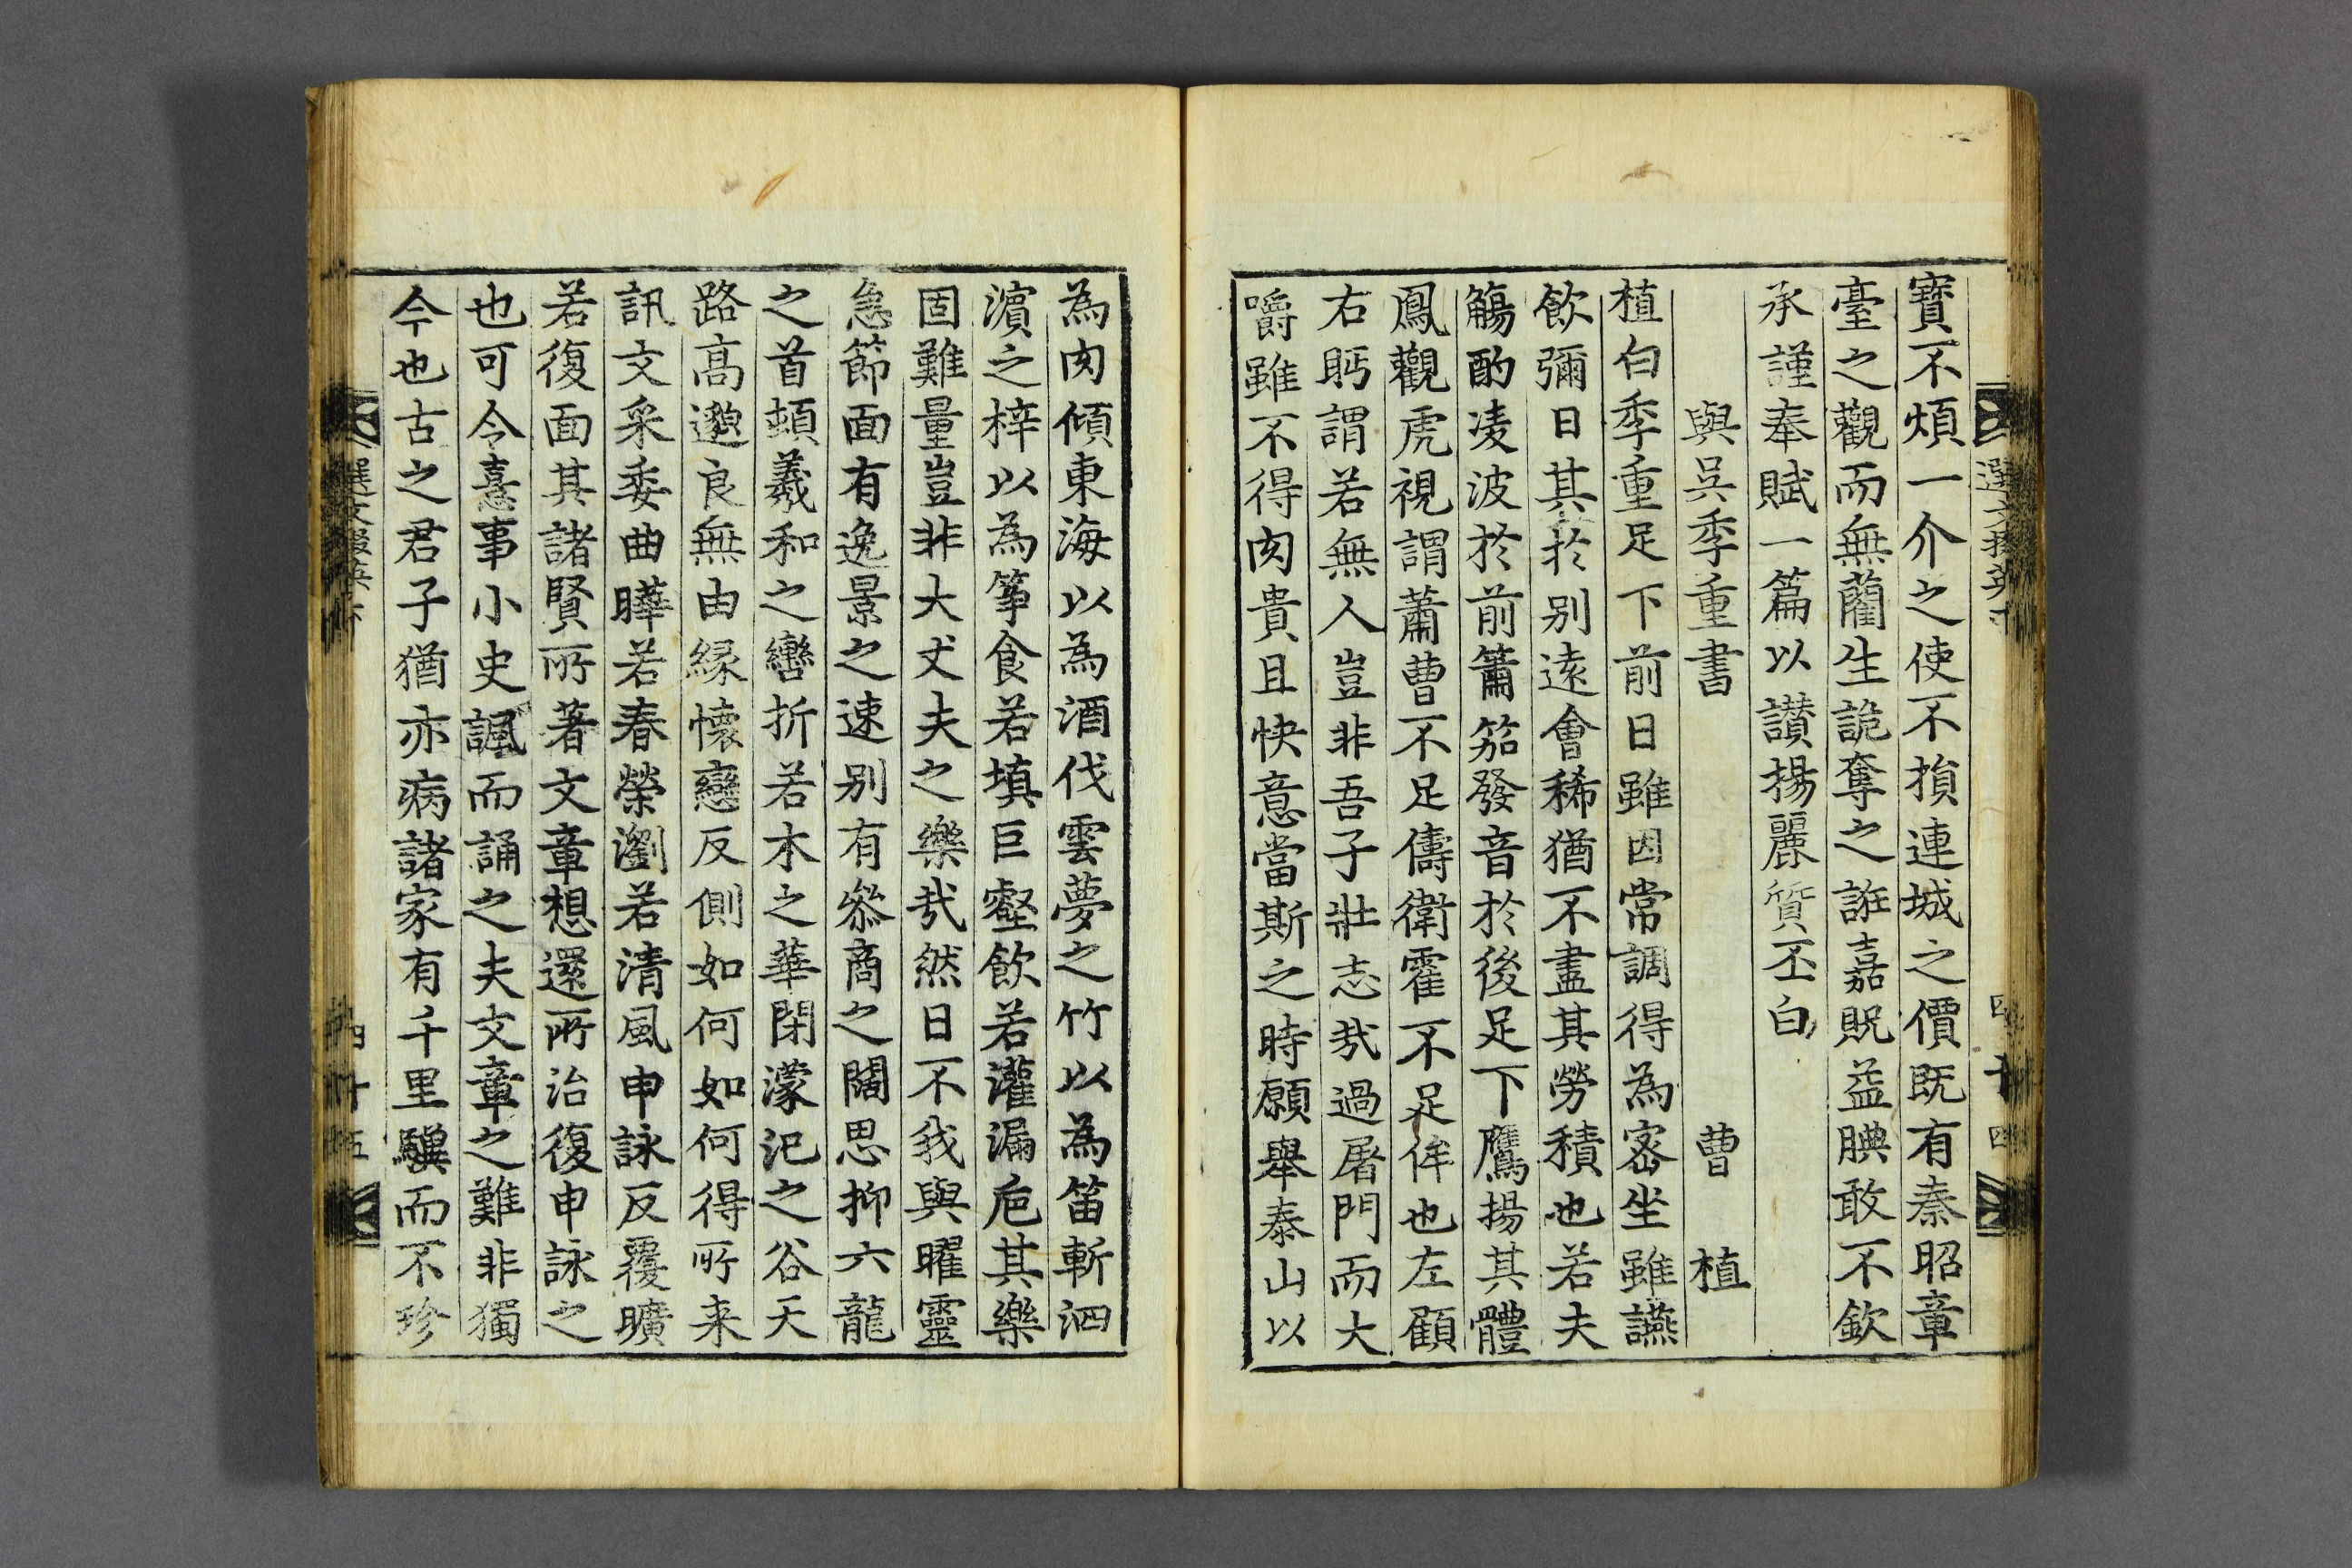 寶不煩一介之使不損連城之價既有秦昭章
臺之觀而無藺生詭奪之誑嘉貺益腆敢不欽
承謹奉賦一篇以讃揚麗質丕白
與吳季重書 曹植
植白季重足下前日雖因常調得為密坐雖讌
飲彌日其於别逺會稀猶不盡其勞積也若夫
觴酌凌波於前簫笳發音於後足下鷹揚其體
鳳觀虎視謂蕭曹不足儔衛霍不足侔也左顧
右眄謂若無人豈非吾子壯志㢤過屠門而大
嚼雖不得肉貴且快意當斯之時願舉泰山以
為肉傾東海以為酒伐雲夢之竹以為笛斬泗
濵之梓以為箏食若填巨壑飲若灌漏巵其樂
固難量豈非大丈夫之樂㢤然日不我與曜靈
急節面有逸景之速别有叅商之闊思抑六龍
之首頓羲和之轡折若木之華閉濛汜之谷天
路高邈良無由縁懐戀反側如何如何得所来
訊文采委曲曄若春榮瀏若清風申詠反覆曠
若復面其諸賢所著文章想還所治復申詠之
也可令憙事小史諷而誦之夫文章之難非獨
今也古之君子猶亦病諸家有千里驥而不珍
選文掇英下
四十四
四十五